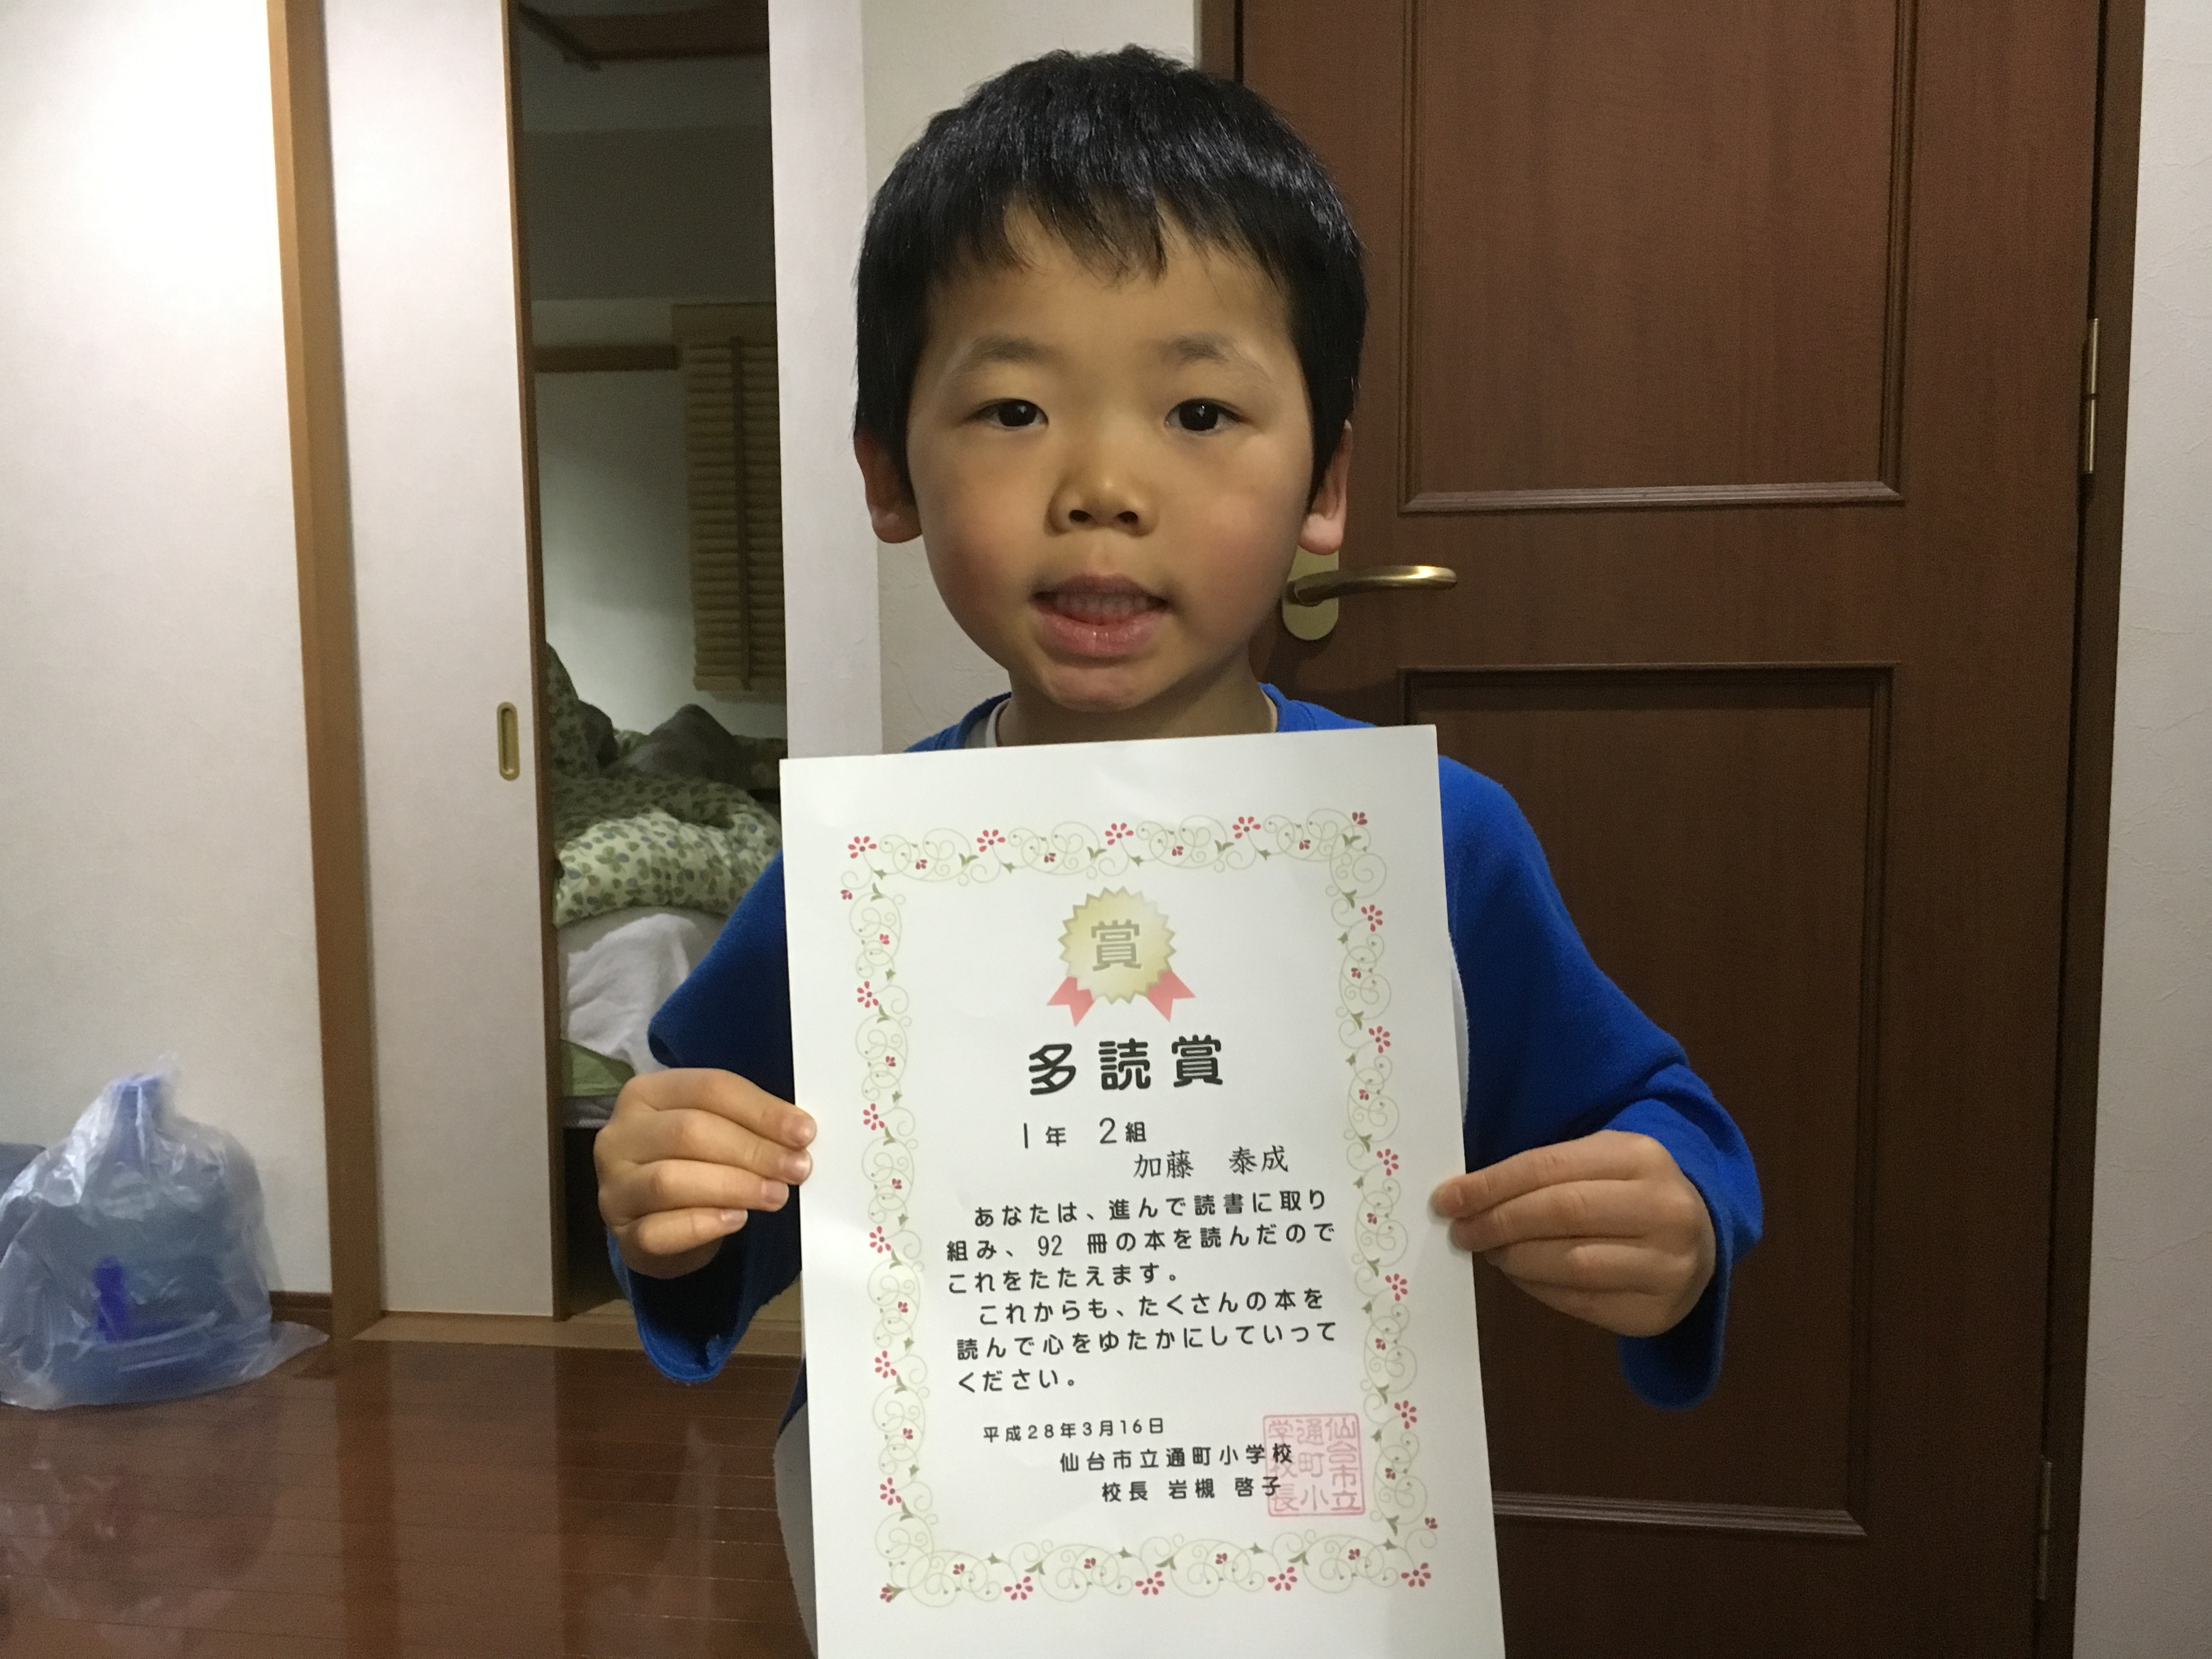 賞
多読賞
1年 2組
加藤 泰成
あなたは、進んで読書に取り
組み、 92 冊の本を読んだので
これをたたえます。
これからも、たくさんの本を
読んで心をゆたかにしていって
ください。
平成28年3月16日
仙台市立通町小学校
校長 岩槻 啓子
仙台市立
通町小
学校長